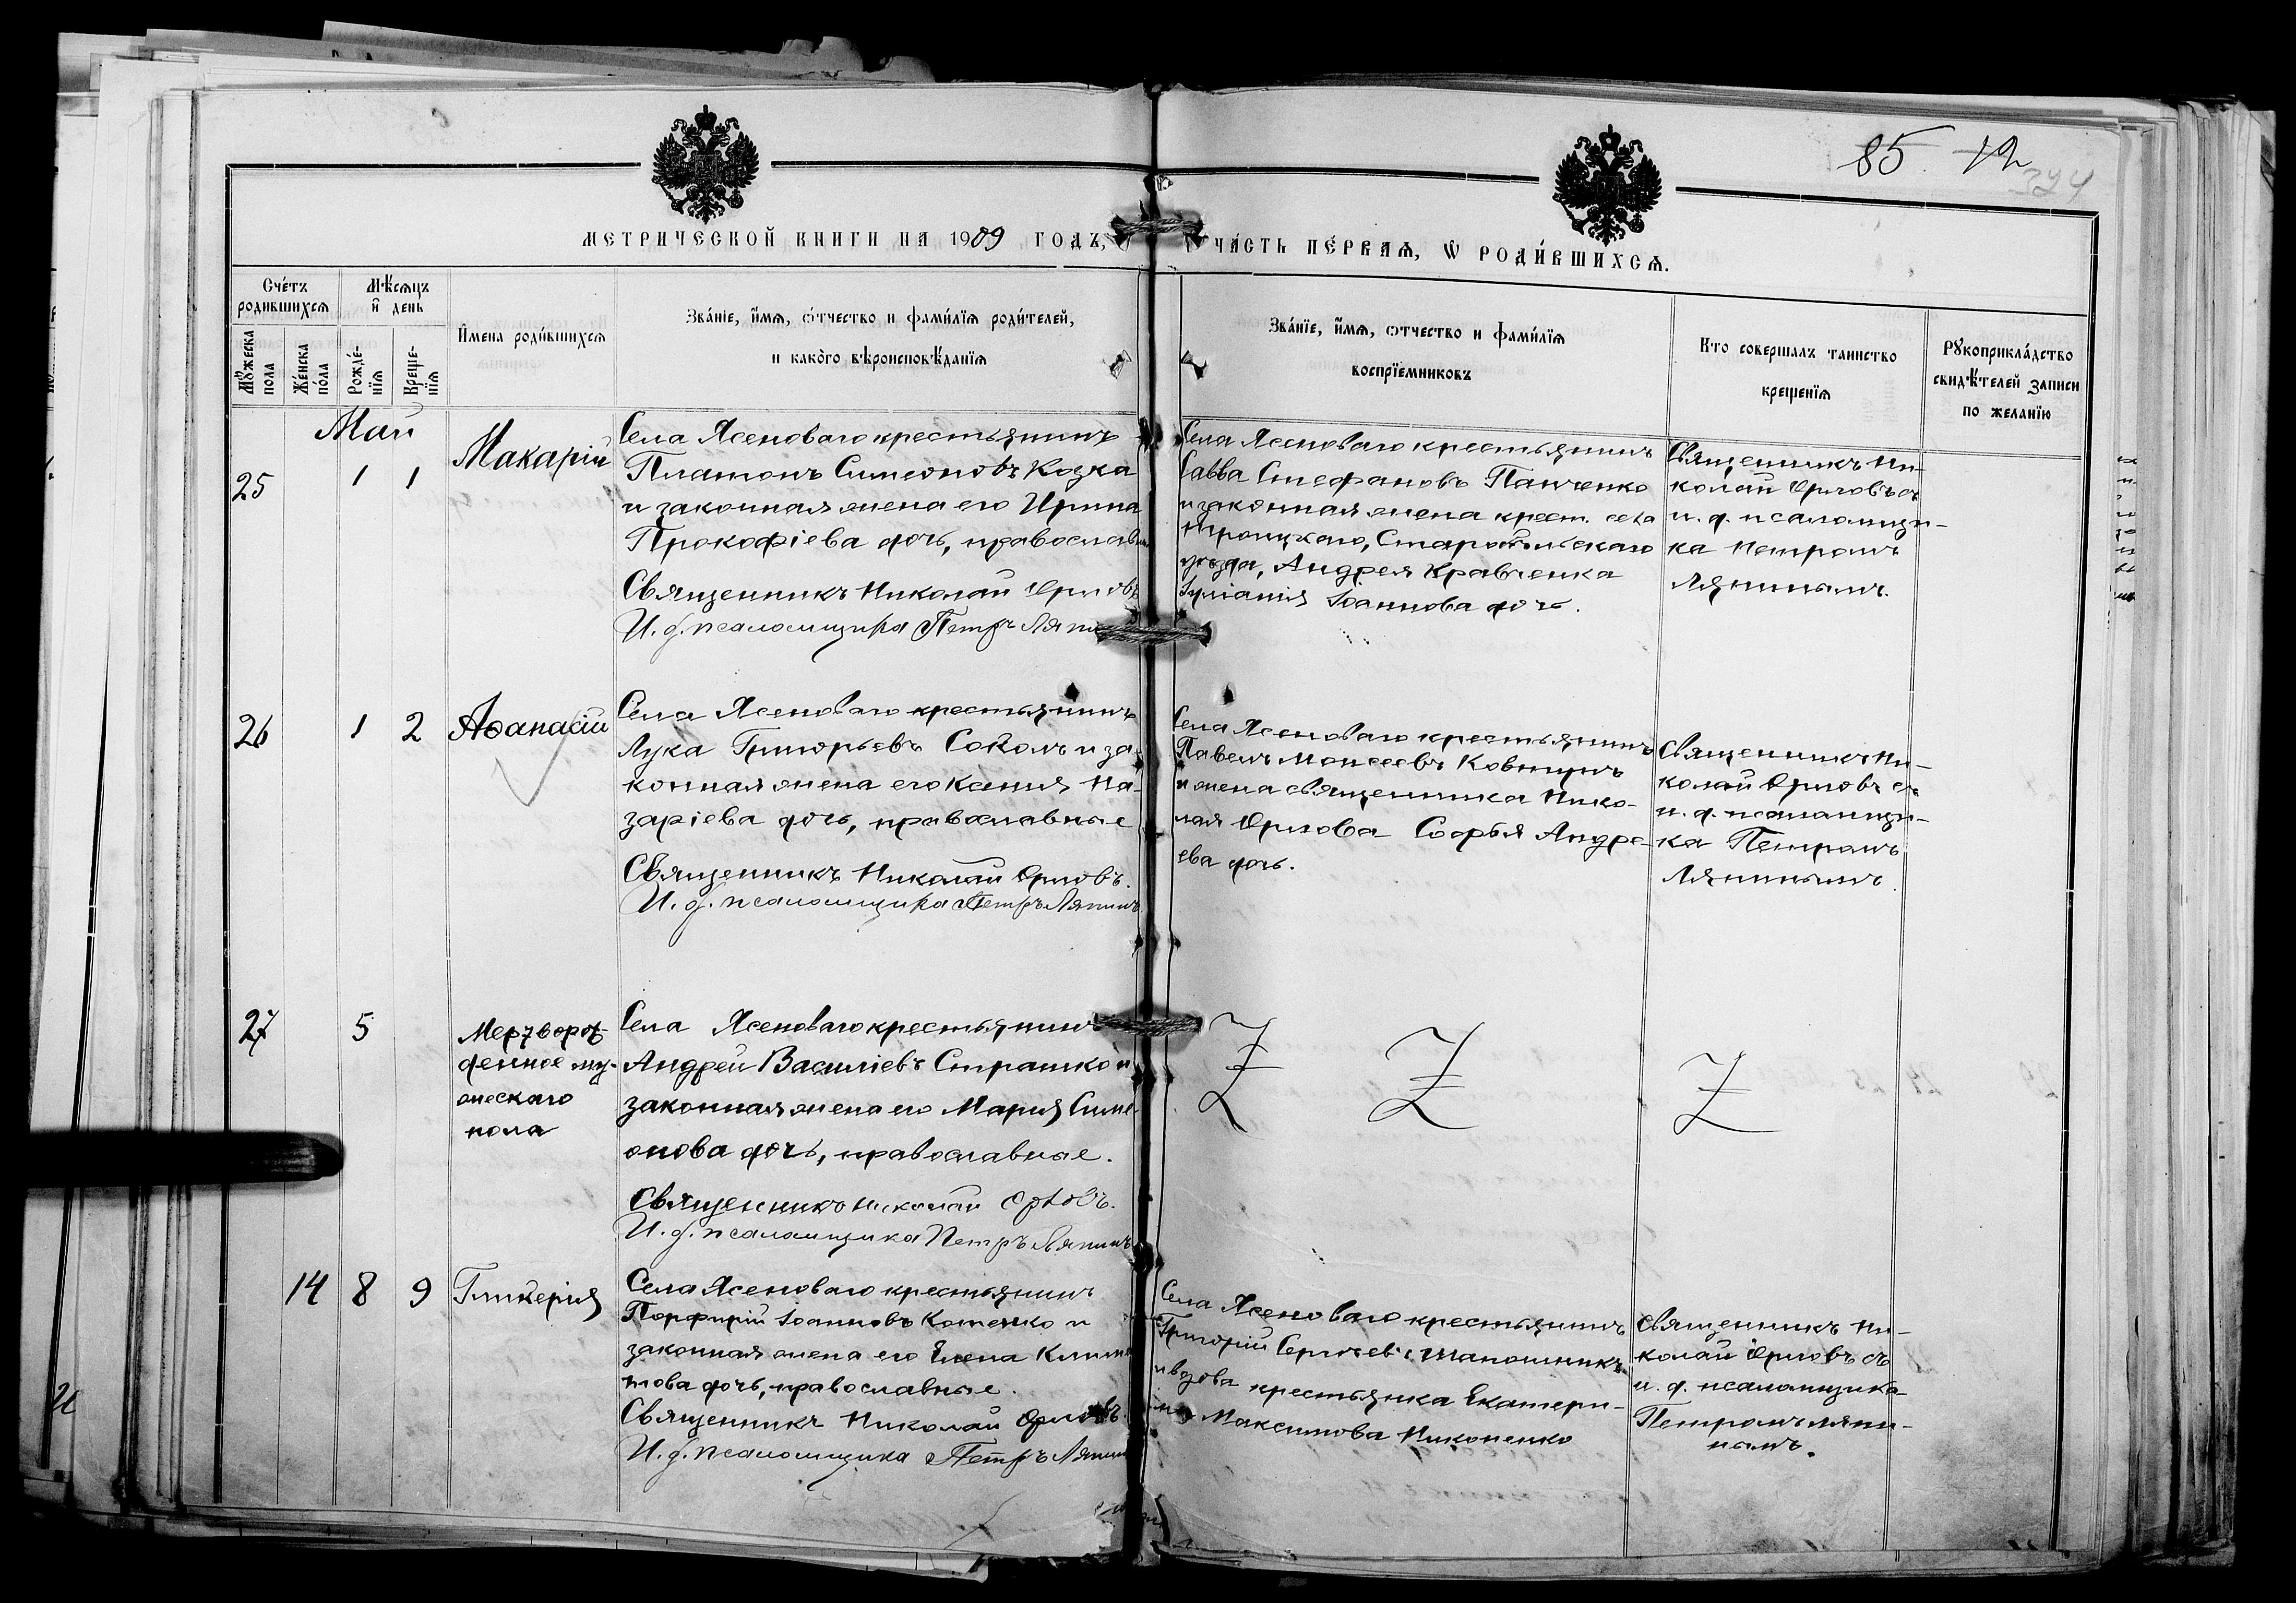 85. 12
324
МЕТРИЧЕСКОЙ КНИГИ НА 1909 ГОДЪ,
ЧА́СТЬ ПЕ́РВАѦ, Ѿ РОДИ́ВШИХСѦ.
Сче́тъ родившихсѧ
Мѣсѧцъ и҆ день
Мꙋ́жеска пола
Же́нска по́ла
Рожде́-нїѧ
Креще-нїѧ
И҆мена роди́вшихсѧ
Зва́нїе, и҆́мѧ, ѻ҆́тчество и фами́лїѧ роди́телей,
и како́го вѣроисповѣ́данїѧ
Зва́нїе, и҆́мѧ, ѻтчество и фами́лїѧ
воспрїе́мниковъ
Кто совершалъ таинство
крещенїѧ
Рꙋкоприкла́дство
свидѣ́телей записи
по желанїю
Май
25
1
1
Макарій
Села Ясеноваго крестьянинъ
Платонъ Симеоновъ Козка
и законная жена его Ирина
Прокофіева дочь, православн
Священникъ Николай Орловъ
И. д. псаломщика Петръ Ляпи
Села Ясеноваго крестьянинъ
Савва Стефановъ Панченко
и законная жена крест. села
Троицкаго, Старобѣльскаго
уѣзда, Андрея Кравченка
Іуліанія Іоаннова дочь.
Священникъ Ни-
колай Орловъ съ
и. д. псаломщи-
ка Петромъ
Ляпинымъ.
26
1
2
Аѳанасій
Села Ясеноваго крестьянинъ
Лука Григорьевъ Соколъ и за-
конная жена его Ксенія На-
заріева дочь, православные
Священникъ Николай Орловъ.
И. д. псаломщика Петръ Ляпинъ.
Села Ясеноваго крестьянинъ
Павелъ Моисеевъ Ковтунъ
и жена священника Нико-
лая Орлова Софья Андре-
ева дочь.
Священникъ Ни-
колай Орловъ съ
и. д. псаломщи-
ка Петромъ
Ляпинымъ.
27
5
Мертворож-
денное му-
жескаго
пола
Села Ясеноваго крестьянинъ
Андрей Василіевъ Страшко и
законная жена его Марія Симе
онова дочь, православные.
Священникъ Николай Орловъ.
И. д. псаломщика Петръ Ляпинъ
Z Z Z
14
8
9
Гликерія
Села Ясеноваго крестьянинъ
Порфирій Іоанновъ Котенко и
законная жена его Елена Климе
нтова дочь, православные.
Священникъ Николай Орловъ.
И. д. псаломщика Петръ Ляпин
Села Ясеноваго крестьянинъ
Григорій Сергіевъ Шапошникъ
и вдова крестьянка Екатери-
на Максимова Никоненко
Священникъ Ни-
колай Орловъ съ
и. д. псаломщика
Петромъ Ляпи-
нымъ.